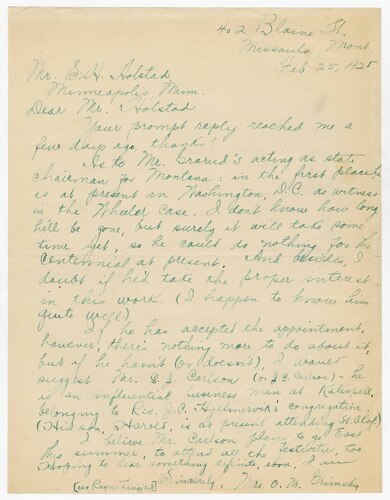 402 Blaine St.
Missoula Mont.
Feb 25, 1925
Mr. E. H. Holstad,
Minneapolis, Minn.
Dear Mr. Holstad:
Your prompt reply reached me a
few days ago, thanks!
As to Mr. acting as state
chairman for Montana: in the first place he
is at present in Washington, D.C. as witness
in the Wheeler Case. I don't know how long
he'll be gone, but surely it will take some
time yet, so he could do nothing for the
Centennial at present. And besides, I
doubt if he'd take the proper interest
in this work. (I happen to know him
quite well).
If he has accepted the appointment,
however, there's nothing more to do about it,
but if he hasn't (or doesn't), I would
suggest Mr. Carlson (or J. C. Carlson) - he
is an influential business man at Kalispell,
belonging to Rev. J. C. congregation
(His son, Harold, is at present attending St. Olaf)
I believe Mr. Carlson plans to go East
this summer, to attend all the festivities, too
Hoping to hear something definite, soon, I am
Sincerely, Mrs. O. M. Grimsby